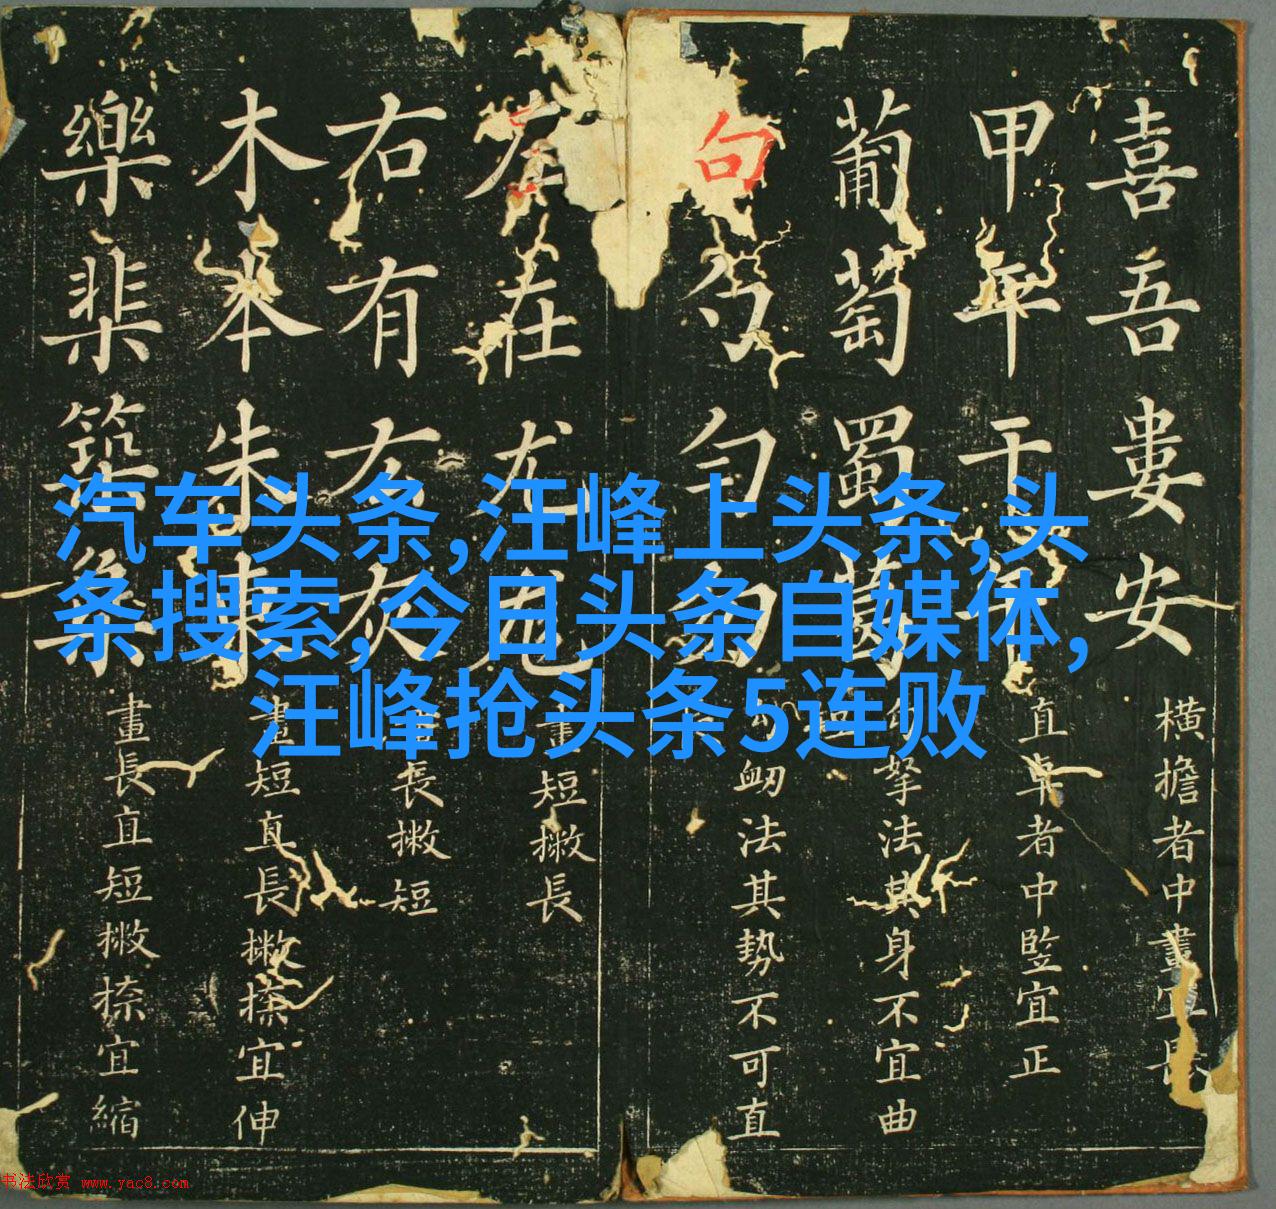 喜吾婁安
横擔者中畫宜長
甲平干午
直卓者中竪宜正
葡萄蜀
拏法其身不宜曲
句勺勻勿
法其勢不可直
左在尤尨
畫短撇長
右有灰
畫長撇短
木本朱東
畫短直長撇捺宜伸
樂棐築集
畫長直短撇捺宜縮
汽车头条,汪峰上头条,头
条搜索,今日头条自媒体,
汪峰抢头条5连败
书法欣赏 www.yac8.com